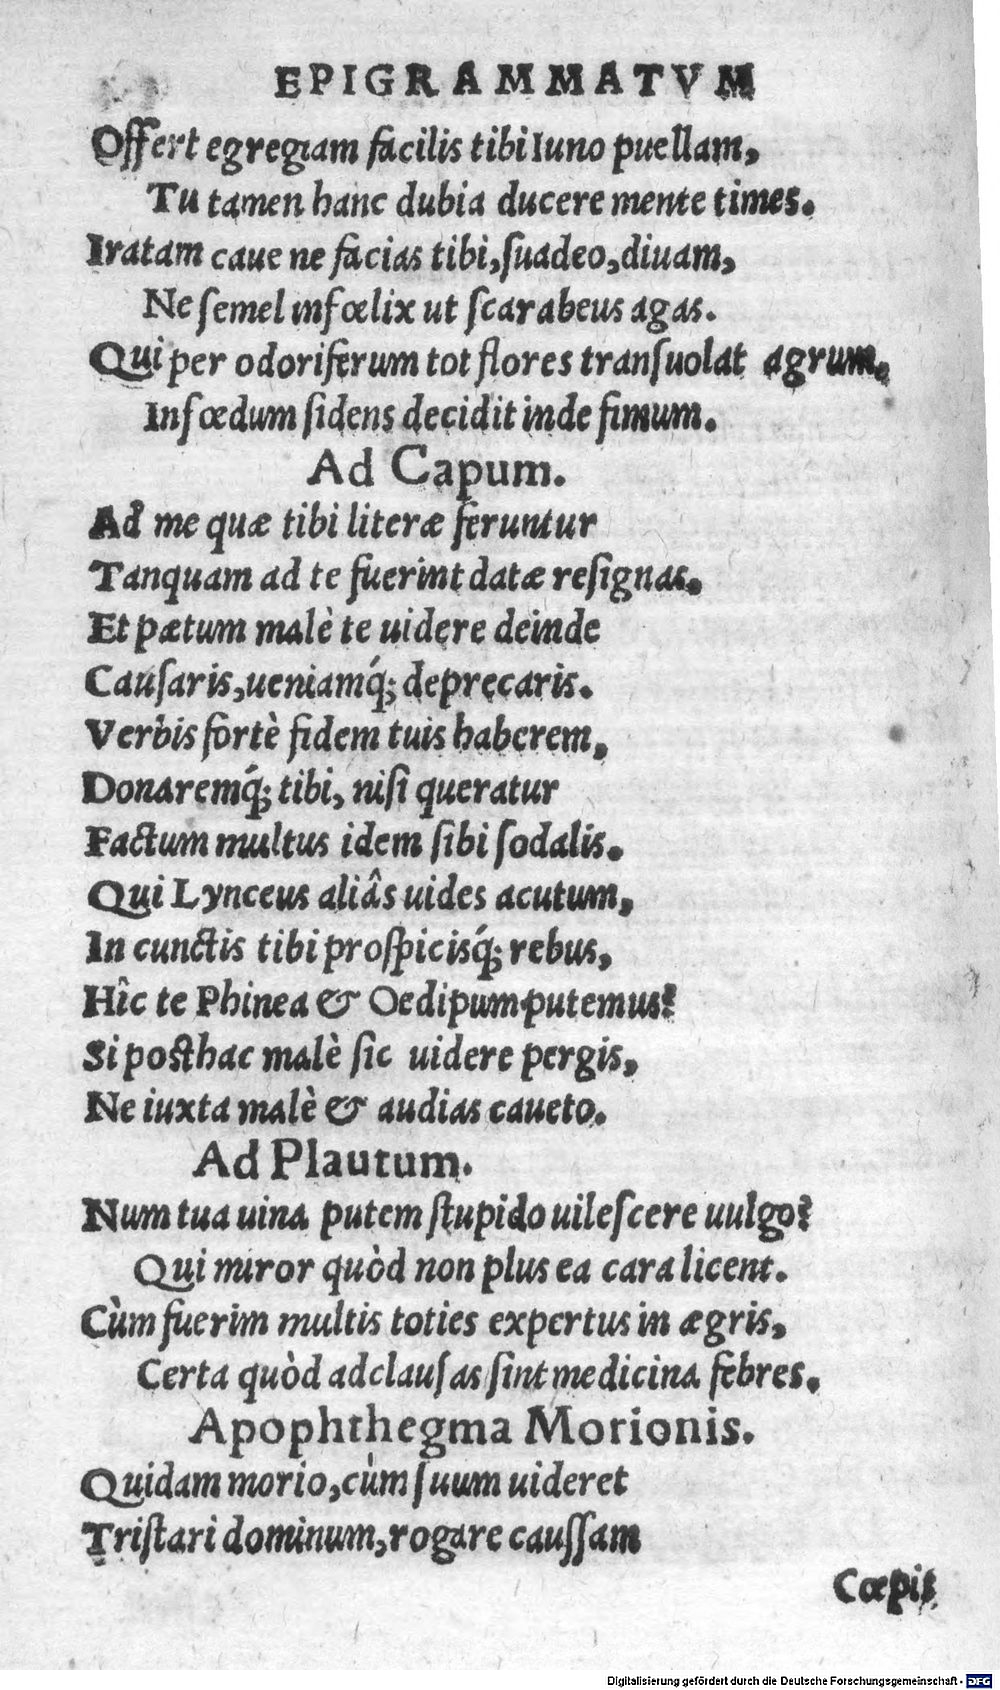 EPIGRAMMATVM
Offert egregiam facilis tibi Iuno puellam,
Tu tamen hanc dubia ducere mente times.
Iratam caue ne facias tibi, ſuadeo, diuam,
Ne ſemel infœlix ut ſcarabeus agas.
Qui per odoriferum tot flores tranſuolat agrum.
In fœdum ſidens decidit inde fimum.
Ad Capum.
Ad me quæ tibi literæ feruntur
Tanquam ad te fuerint datæ reſignas.
Et pætum malè te uidere deinde
Cauſaris, ueniamq́; deprecaris.
Verbis fortè fidem tuis haberem,
Donaremq́; tibi, niſi queratur
Factum multus idem ſibi ſodalis.
Qui Lynceus aliâs uides acutum,
In cunctis tibi proſpicisq́; rebus,
Hîc te Phinea & Oedipum putemus?
Si poſthac malè ſic uidere pergis,
Ne iuxta malè & audias caueto.
Ad Plautum.
Num tua uina putem ſtupido uileſcere uulgo?
Qui miror quòd non plus ea cara licent.
Cùm fuerim multis toties expertus in ægris,
Certa quòd ad clauſas ſint medicina febres.
Apophthegma Morionis.
Quidam morio, cùm ſuum uideret
Triſtari dominum, rogare cauſſam
Cœpit
Digitalisierung gefördert durch die Deutsche Forschungsgemeinschaft - DFG